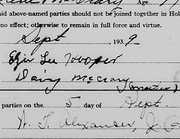 said above-named parties should not be joined together in Hol
no effect; otherwise to remain in full force and virtue.
Sept 1939
Lee Cooper
Daisy McCrary
parties on the 5 day of Sept.
W. T. Alexander, J